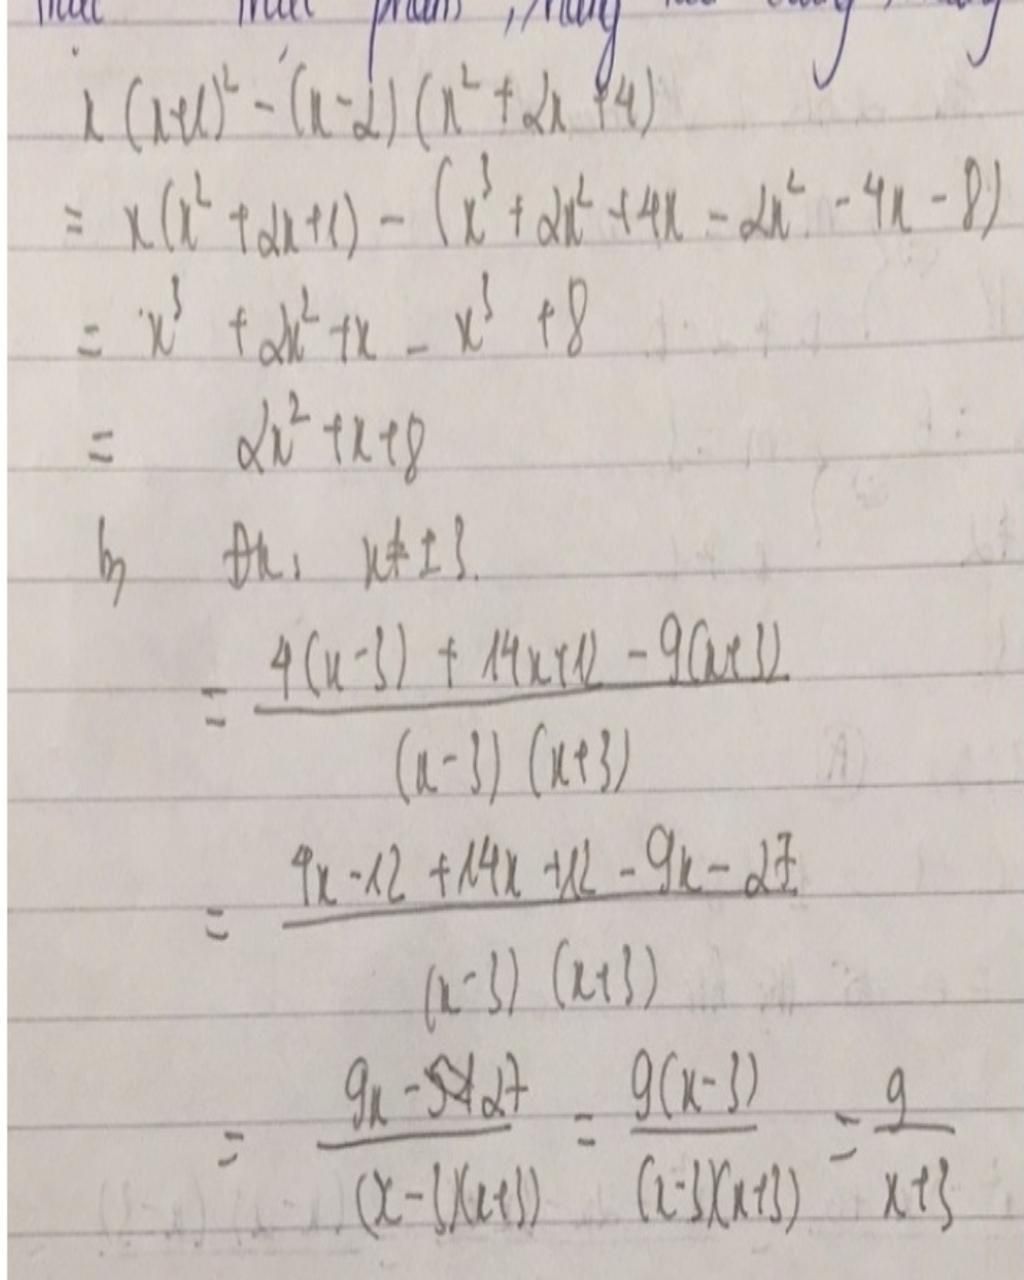 x(x+1)² - (x-2)(x² + 2x + 4)
= x(x² + 2x + 1) - (x³ + 2x² + 4x - 2x² - 4x - 8)
= x³ + 2x² + x - x³ + 8
= 2x² + x + 8
b, Đk: x ≠ ± 3.
= 4(x-3) + 14x+12 - 9(x+3)
(x-3) (x+3)
= 4x - 12 + 14x + 12 - 9x - 27
(x-3) (x+3)
= 9x - 27 = 9(x-3) = 9
(x-3)(x+3) (x-3)(x+3) x+3